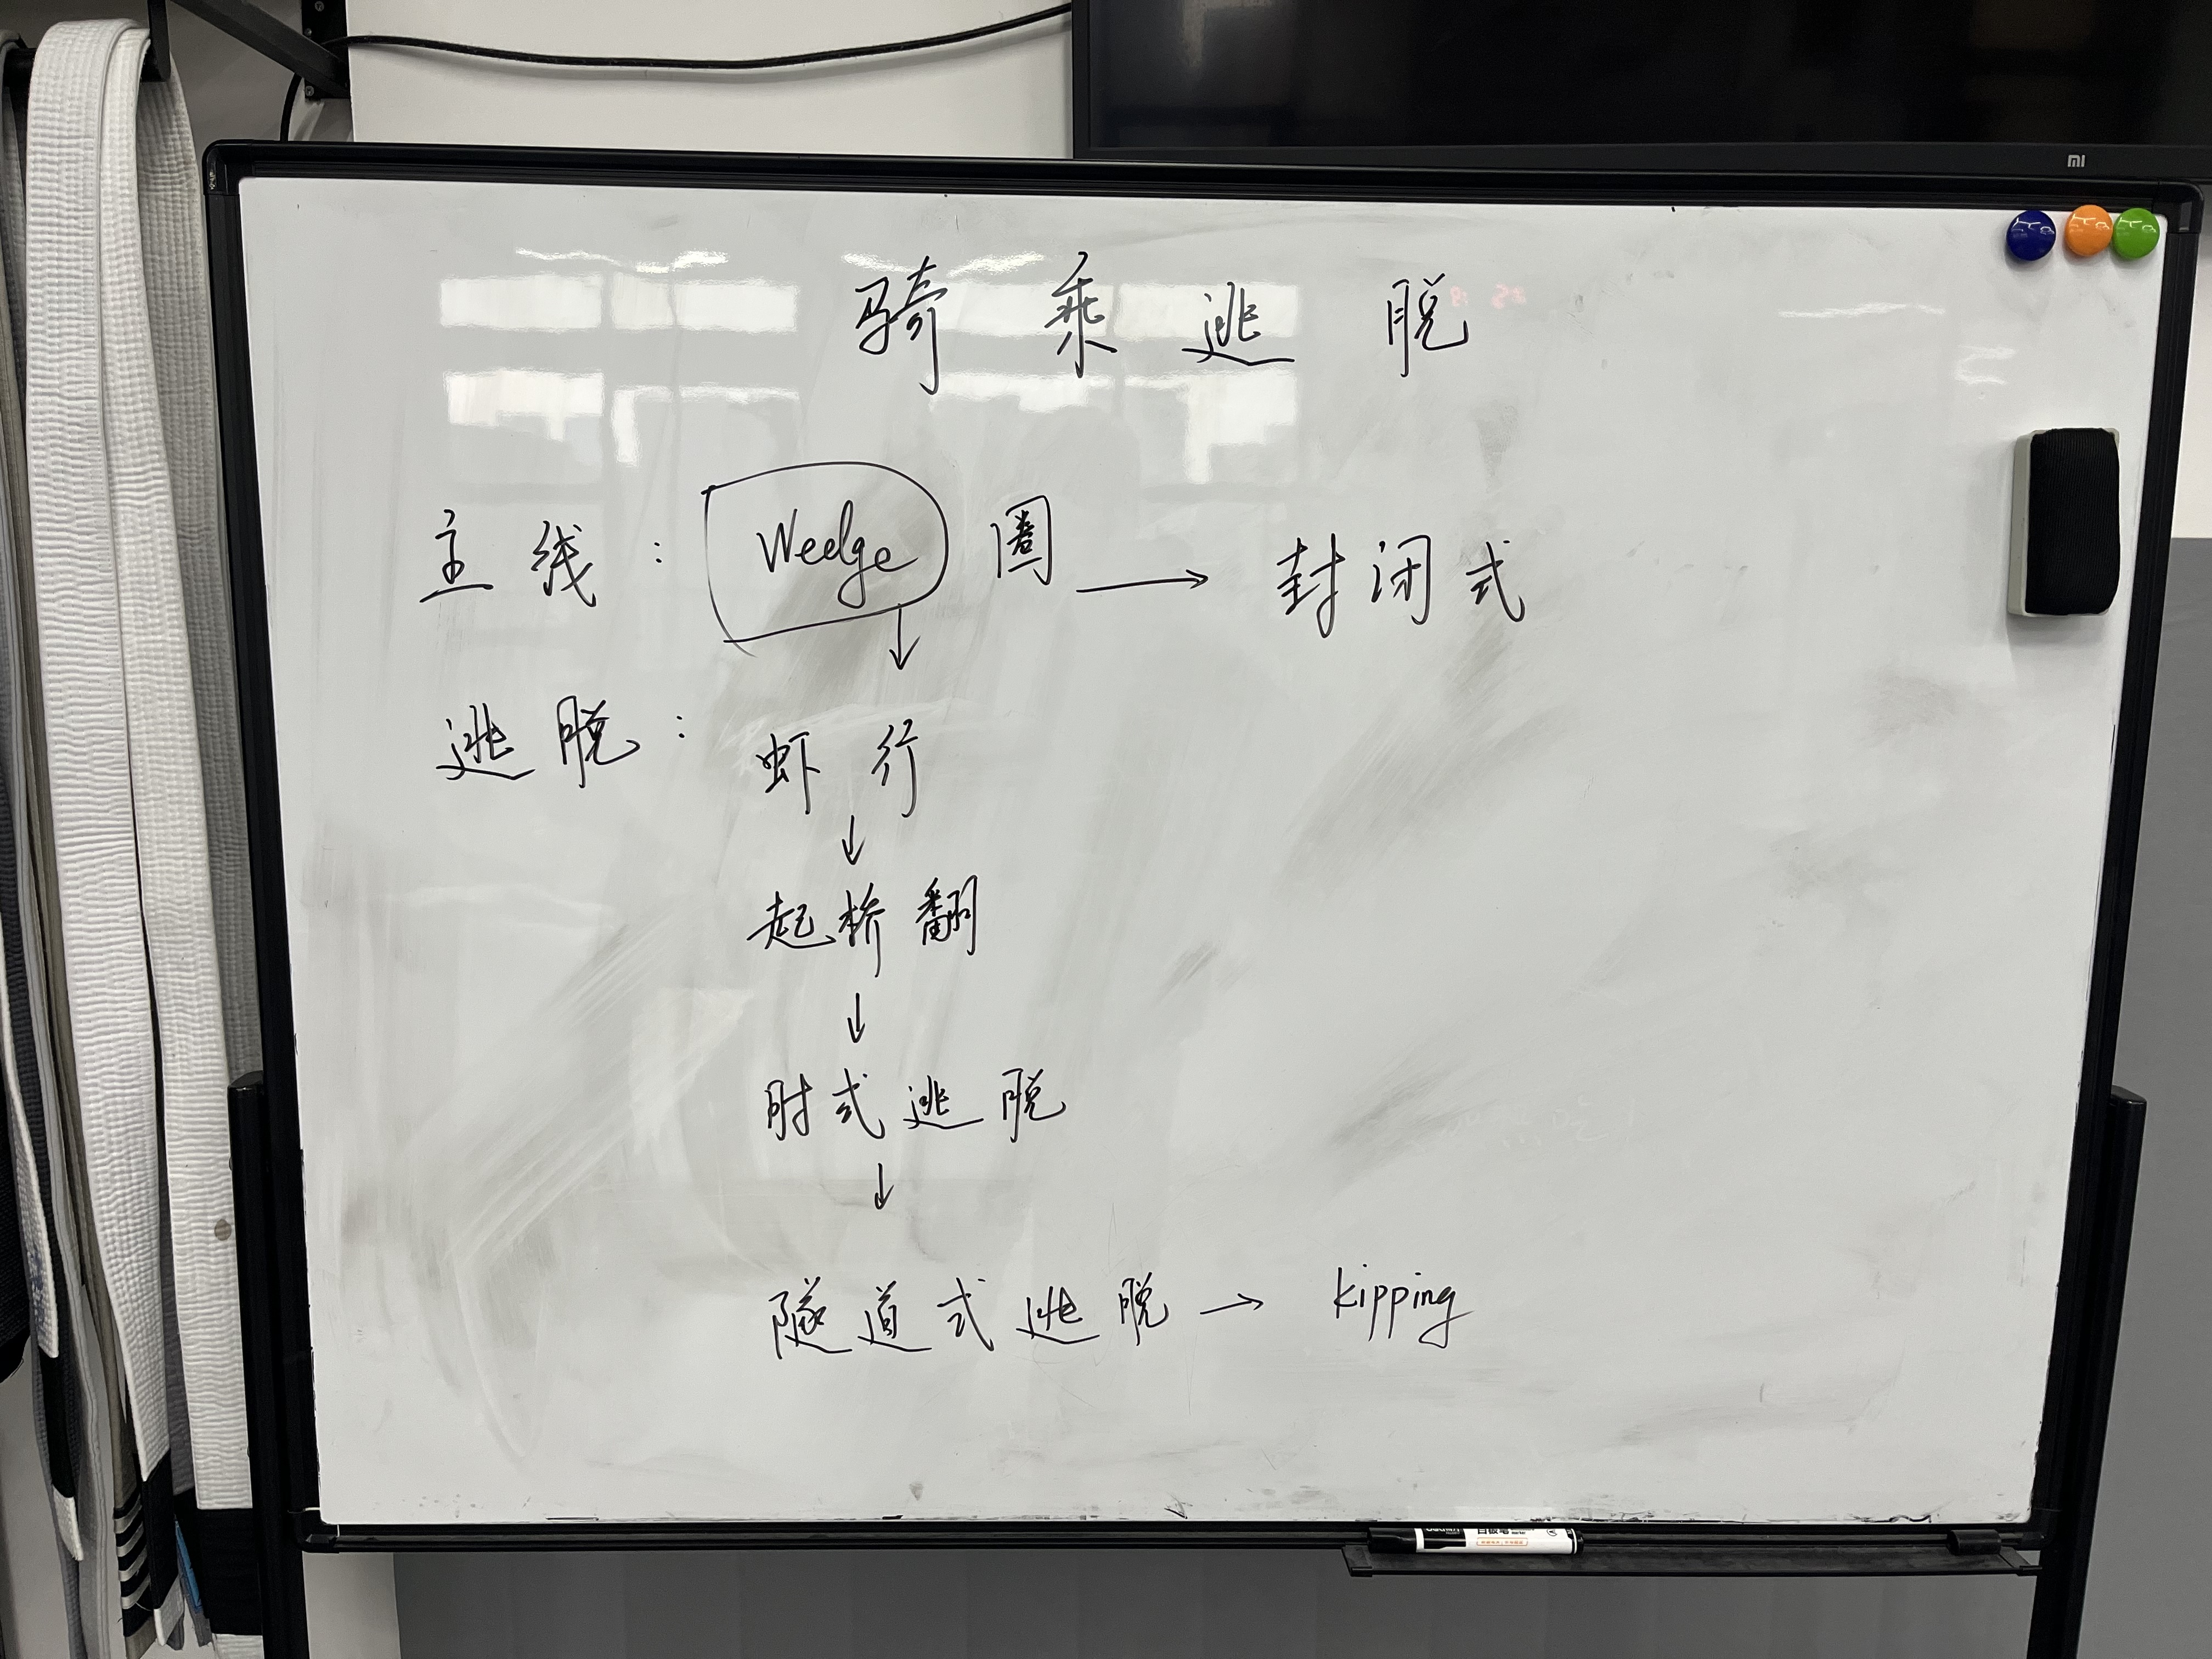 mi
骑乘逃脱
主线： Wedge 圈 → 封闭式
↓
逃脱： 虾行
↓
起桥翻
↓
肘式逃脱
↓
隧道式逃脱 → kipping
白板笔